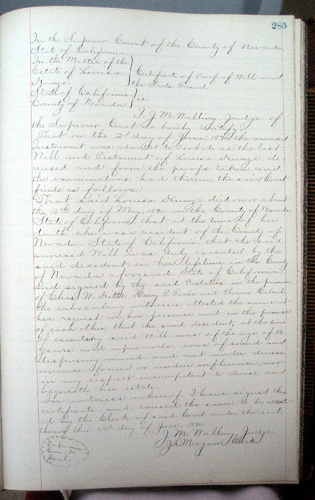 285
In the Superior Court of the County of Nevada
State of California
In the Matter of the
Estate of Louisa
Certificate of Proof of Will and
the facts found
State of California
County of Nevada } ss
I, J. M. Walling, Judge of
the Superior Court do hereby certify
That on the 2nd day of June the annexed
instrument was admitted to probate as the last
Will and Testament of Louisa de-
ceased and from the proofs taken and
the examination had therein the said Court
finds as follows:
That said Louisa died on or about
the day of May, in the County of Nevada
State of California that at the time of her
death she was a resident of the County of
Nevada State of California that the said
annexed Will was duly executed by the
said decedent in the County
of Nevada aforesaid, State of California
and signed by the said Testatrix in the presence
of Chas. W. Henry and Thomas
the subscribing witnesses attested the same at
her request in her presence and in the presence
of each other that the said decedent at the time
of executing said Will was of the age of
years and upwards was of sound and
disposing mind and not under duress
menace fraud or undue influence nor
in any respect incompetent to devise and
bequeath her estate.
In witness whereof I have signed this
certificate and caused the same to be attest-
ed by the Clerk of said Court under the seal
thereof this 2nd day of June
J. M. Walling Judge
Morgan Clerk
Superior
Court
Seal